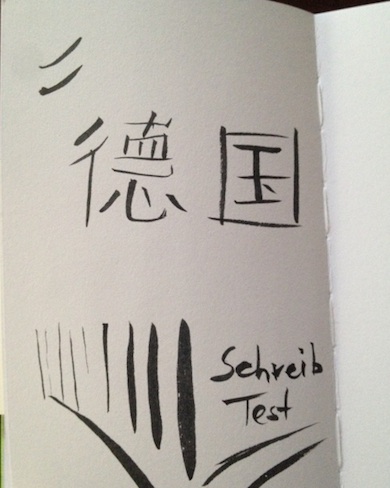 德国
Schreib
Test